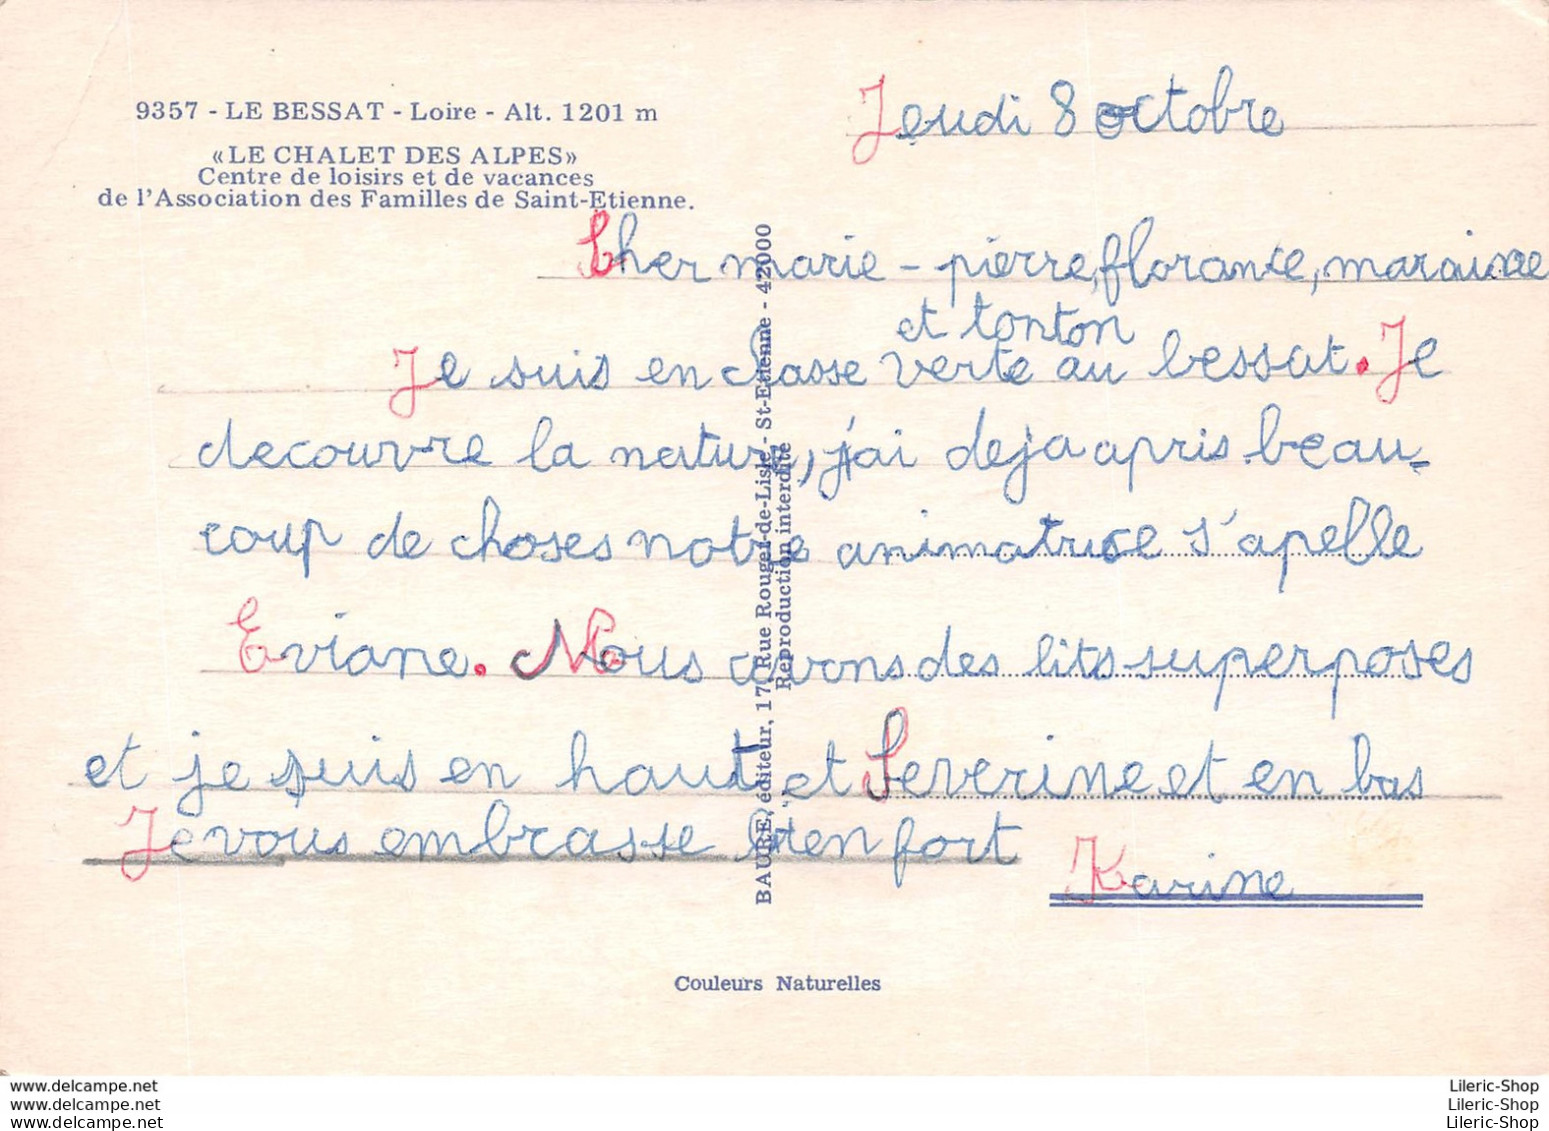 9357 - LE BESSAT - Loire - Alt. 1201 m
«LE CHALET DES ALPES»
Centre de loisirs et de vacances
de l'Association des Familles de Saint-Etienne.
Jeudi 8 octobre
Cher marie - pierre, florance, maraine
et tonton
Je suis en classe verte au bessat. Je
decouvre la nature, j'ai deja apris beau-
coup de choses notre animatrice s'apelle
Eviane. Nous avons des lits superposes
et je suis en haut et Severine et en bas
Je vous embrasse bien fort
Karine
BAURE, éditeur, 17, Rue Rouget-de-Lisle - St-Etienne - 42000
Reproduction interdite
Couleurs Naturelles
www.delcampe.net
www.delcampe.net
www.delcampe.net
Lileric-Shop
Lileric-Shop
Lileric-Shop